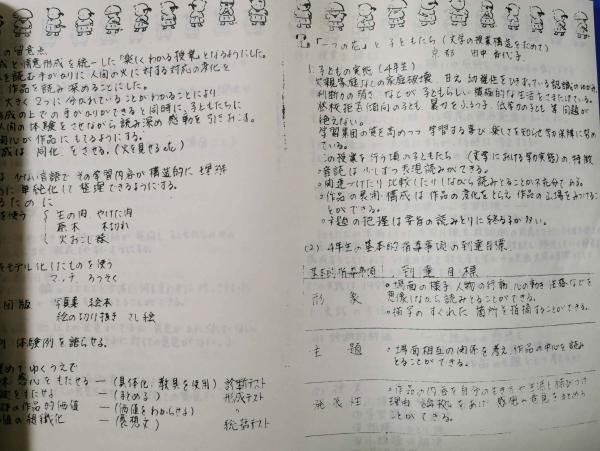 の留意点
成と情意形成を統一した「楽しくわかる授業」となるようにした。
を読む手がかりに人間の火に対する対応の変化を
作品を読み深めることにした。
大きく2つに分かれていることがわかることにより
成の上での手がかりができると同時に、子どもたちに
人間の体験をさせながら読み深め感動を引きおこす。
関心が作品にもてるようにする。
成は 同化 をさせる。(火を見せるetc)
は 少ない言語でその学習内容が構造的に理解
に単純化して整理できるようにする。
ために
を使う 生の肉 やけた肉
原木 木切れ
火おこし様
モデル化したものを使う
マッチ ろうそく
図版 写真集 絵本
絵の切り抜き さし絵
体験例を語らせる。
ゆくうえで
関心をもたせる — (具体化、教具を使用) 診断テスト
をすたせる — (まとめる) 形成テスト
の作品的価値 — (価値をわからせる) 〃
値の組織化 — (感想文) 総括テスト
「一つの花」と子どもたち (文学の授業構造を求めて)
京都 田中
1. 子どもの実態 (4年生)
父親 母親などの家庭破壊、甘え 幼稚性をひきずっている認識の
判断力の弱さ などが子どもらしい積極的な生活をさまたげている。
登校拒否傾向の子ども、暴力をふるう子、低学力の子ども等 問題が
絶えない。
学習集団の質を高めつつ 学習する喜び 楽しさを知らせ 学力保障に努め
ている。
この授業を行う頃の子どもたち — (文学における学力実態)の特徴
○音読は 少しずつ表現読みができる。
○関連づけたり比較したりしながら読みとることが不充分である。
○作品の表現・構成は 作品の変化をとらえ 作品の山場をみつけるこ
とができる。
○主題の把握は 各自の読みとりに終る子が多い。
(2) 4年生の基本的指導事項の到達目標
基本的指導事項 到達目標
形象 ○場面の様子 人物の行動 心の動き 性格などを
想像しながら読みとることができる。
○描写のすぐれた箇所を指摘することができる。
主題 ○場面相互の関係を考え、作品の中心を読み
とることができる。
発展性 ○作品の内容を自分の生き方や生活と結びつけ
理由 論拠をあげ 感想や意見をまとめる
ことができる。